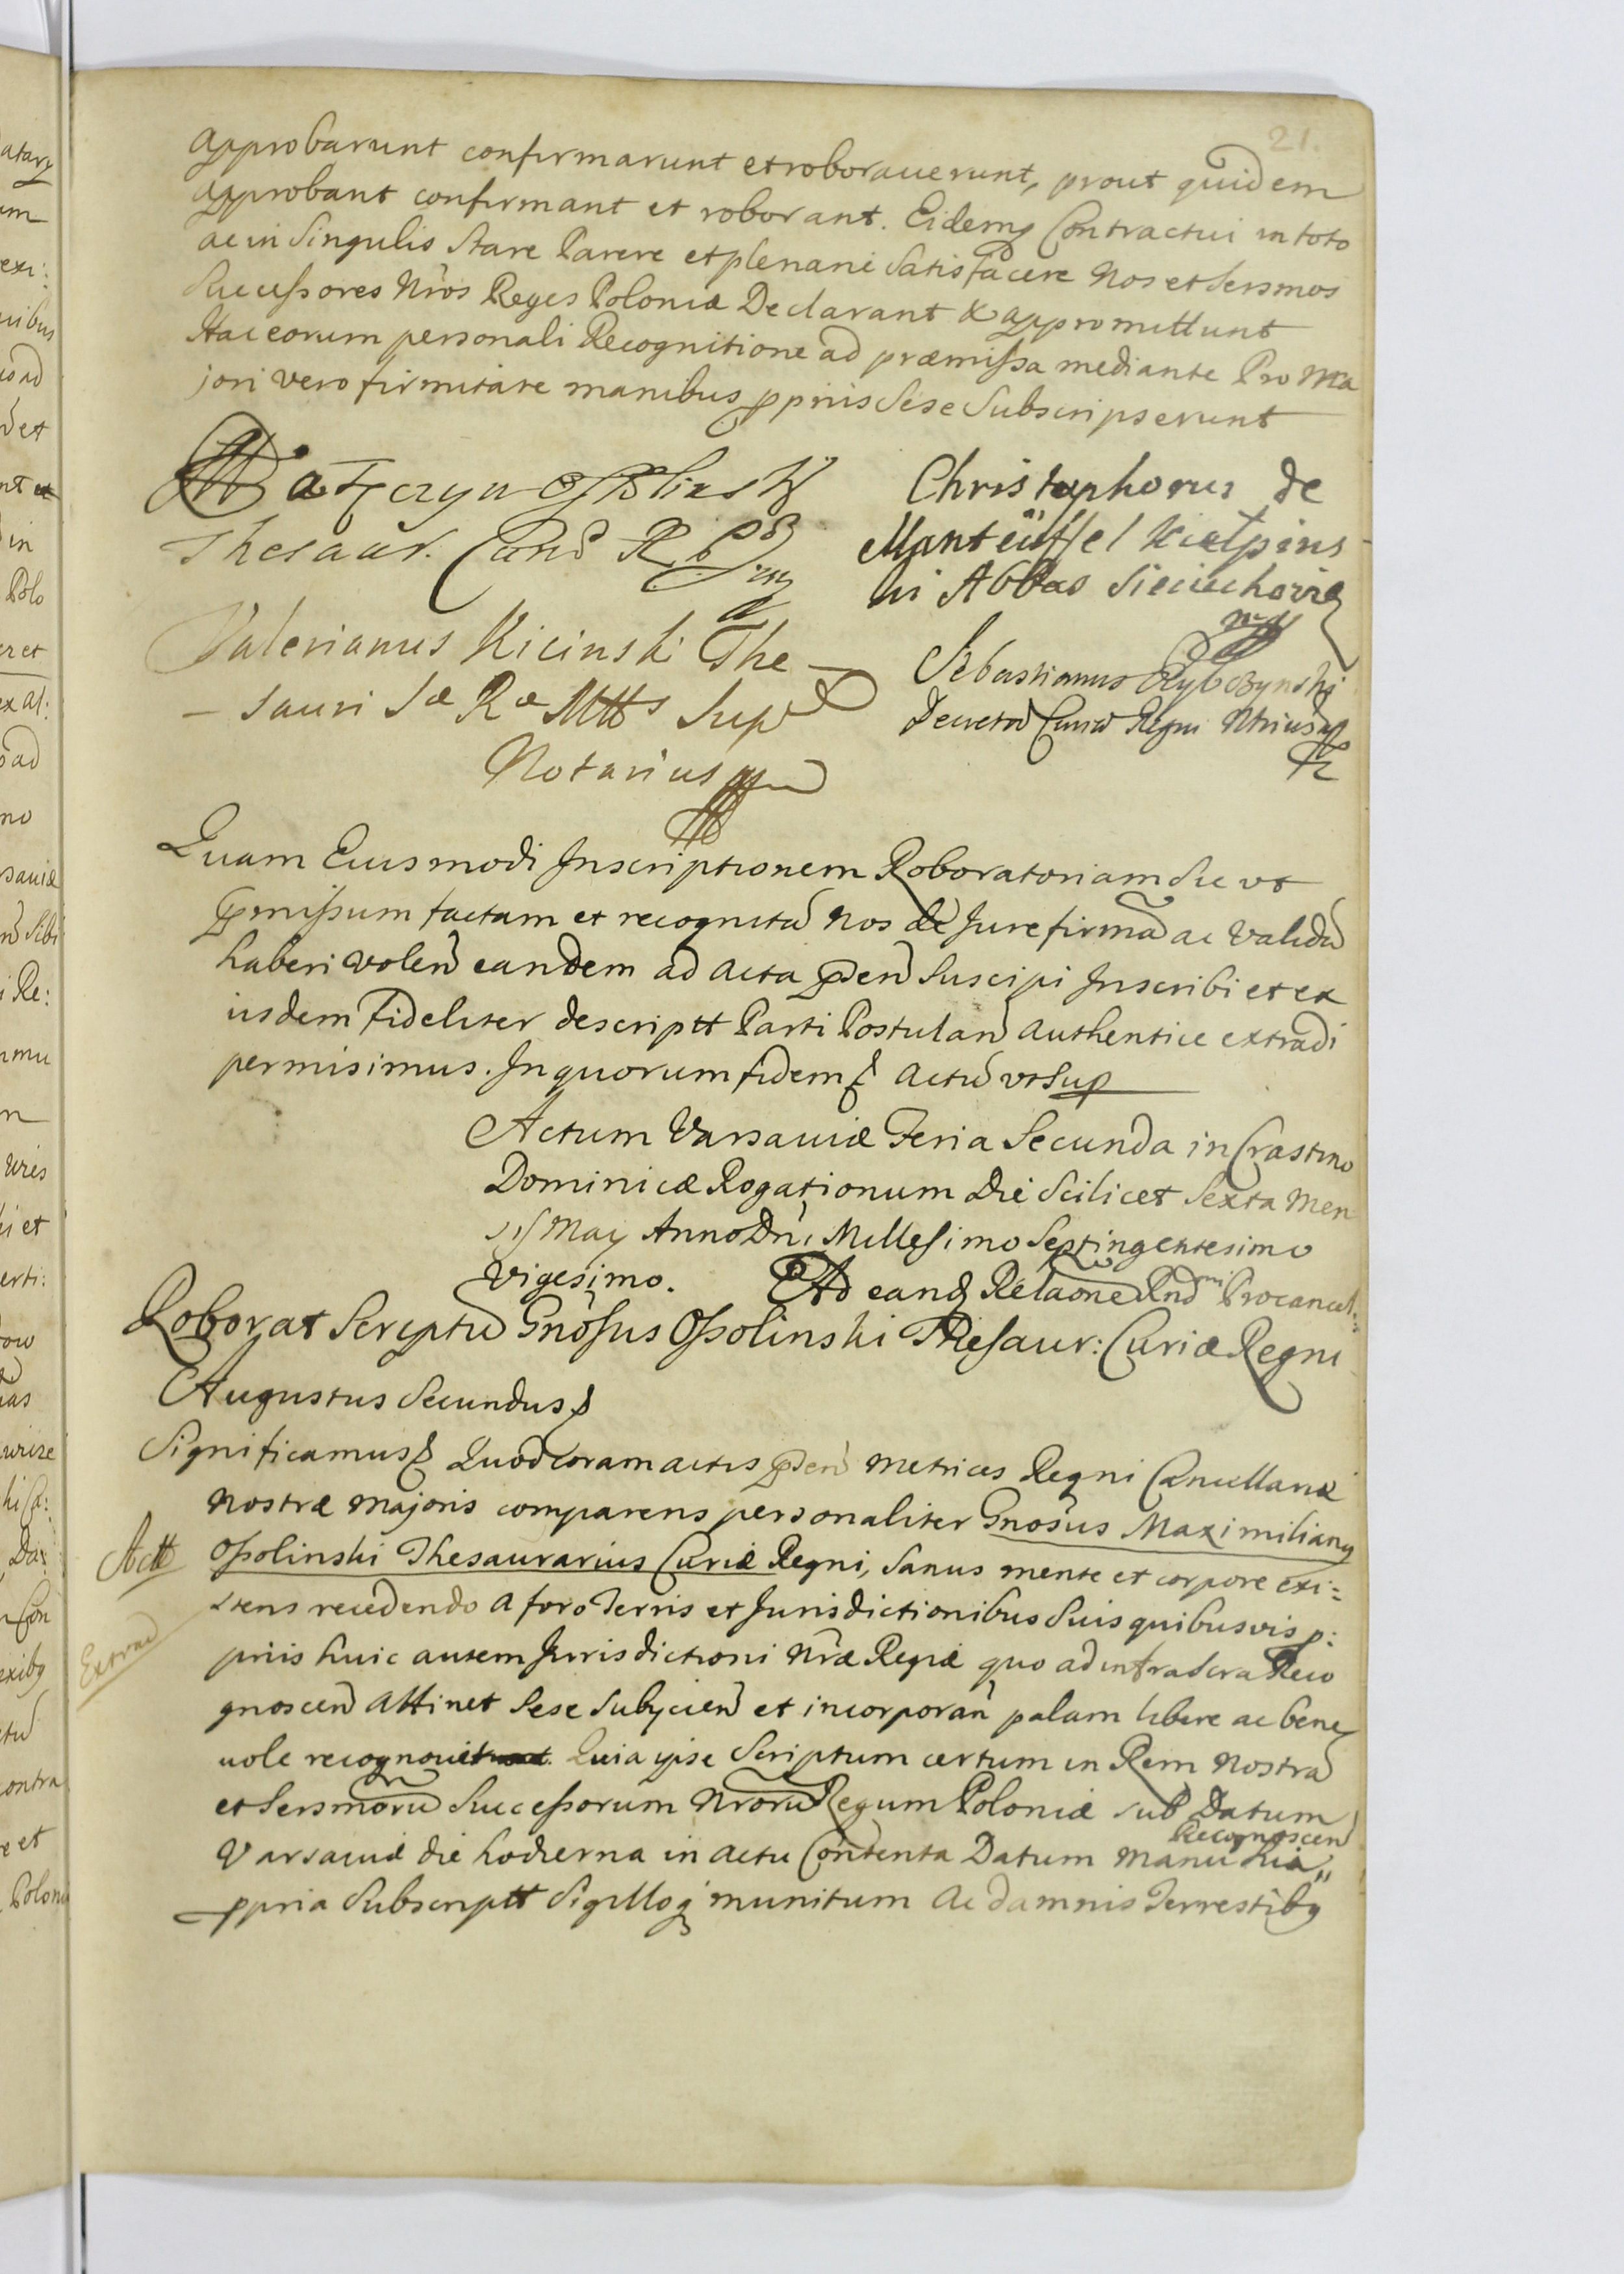 21.
approbarunt confirmarunt et roborauerunt, prout quidem
approbant confirmant et roborant. Eidemq Contractui in toto
ac in Singulis Stare Parere et plenarie Satisfacere Nos et Sersmos
Successores Nros Reges Poloniæ Declarant & appromittunt
Hac eorum personali Recognitione ad præmissa mediante Pro Ma
jori vero firmitate manibus ppriis Sese Subscripserunt
Ossolinsky
Thesaur. Curiæ R
Christophorus de
Manteüffel Kiełpins
ki Abbas Sieciechovien
mp
Valerianus Kicinski The
sauri Sæ Ræ Mttis Supr
Notarius mp
Sebastianus Rybczynski
Decretor Curiæ Regni Ntrius mp
Quam Eiusmodi Inscriptionem Roboratoriam Sic vt
pmissum factam et recognitã Nos de Jure firmã ac validã
haberi volen eandem ad acta pden Suscipi Inscribi et ex
iisdem Fideliter descriptt Parti Postulan authentice extradi
permisimus. In quorum fidem & actũ vt Sup
Actum Varsauiæ Feria Secunda in Crastino
Dominicæ Rogationum Die Scilicet Sexta Men
sis May Anno Dni Millesimo Septingentesimo
vigesimo. Ad eand Relaõne Rndmi Procancel:
Roborat Scriptũ Gnosus Ossolinski Thesaur: Curiæ Regni
Augustus Secundus &
Significamus & Quod coram actis pden Metrices Regni Cancellariæ
Nostræ Majoris comparens personaliter Gnosus Maximilianus
Actt
Ossolinski Thesaurarius Curiæ Regni, Sanus mente et corpore exi=
stens recedendo a foro Terris et Jurisdictionibus Suis quibusvis p:
Extrad
priis huic autem Jurisdictioni Nræ Regiæ quo ad infrascra Reco
gnoscen attinet Sese Subjicien et incorporan palam libere ac bene
uole recognouit Quia ipse Scriptum certum in Rem Nostrã
et Sersmorũ Successorum Nrorũ Regum Poloniæ sub Datum
Recognoscen
Varsauiæ die hodierna in actu Contenta Datum manu Sua
ppria Subscriptt Sigilloq munitum ac damnis Terrestibq